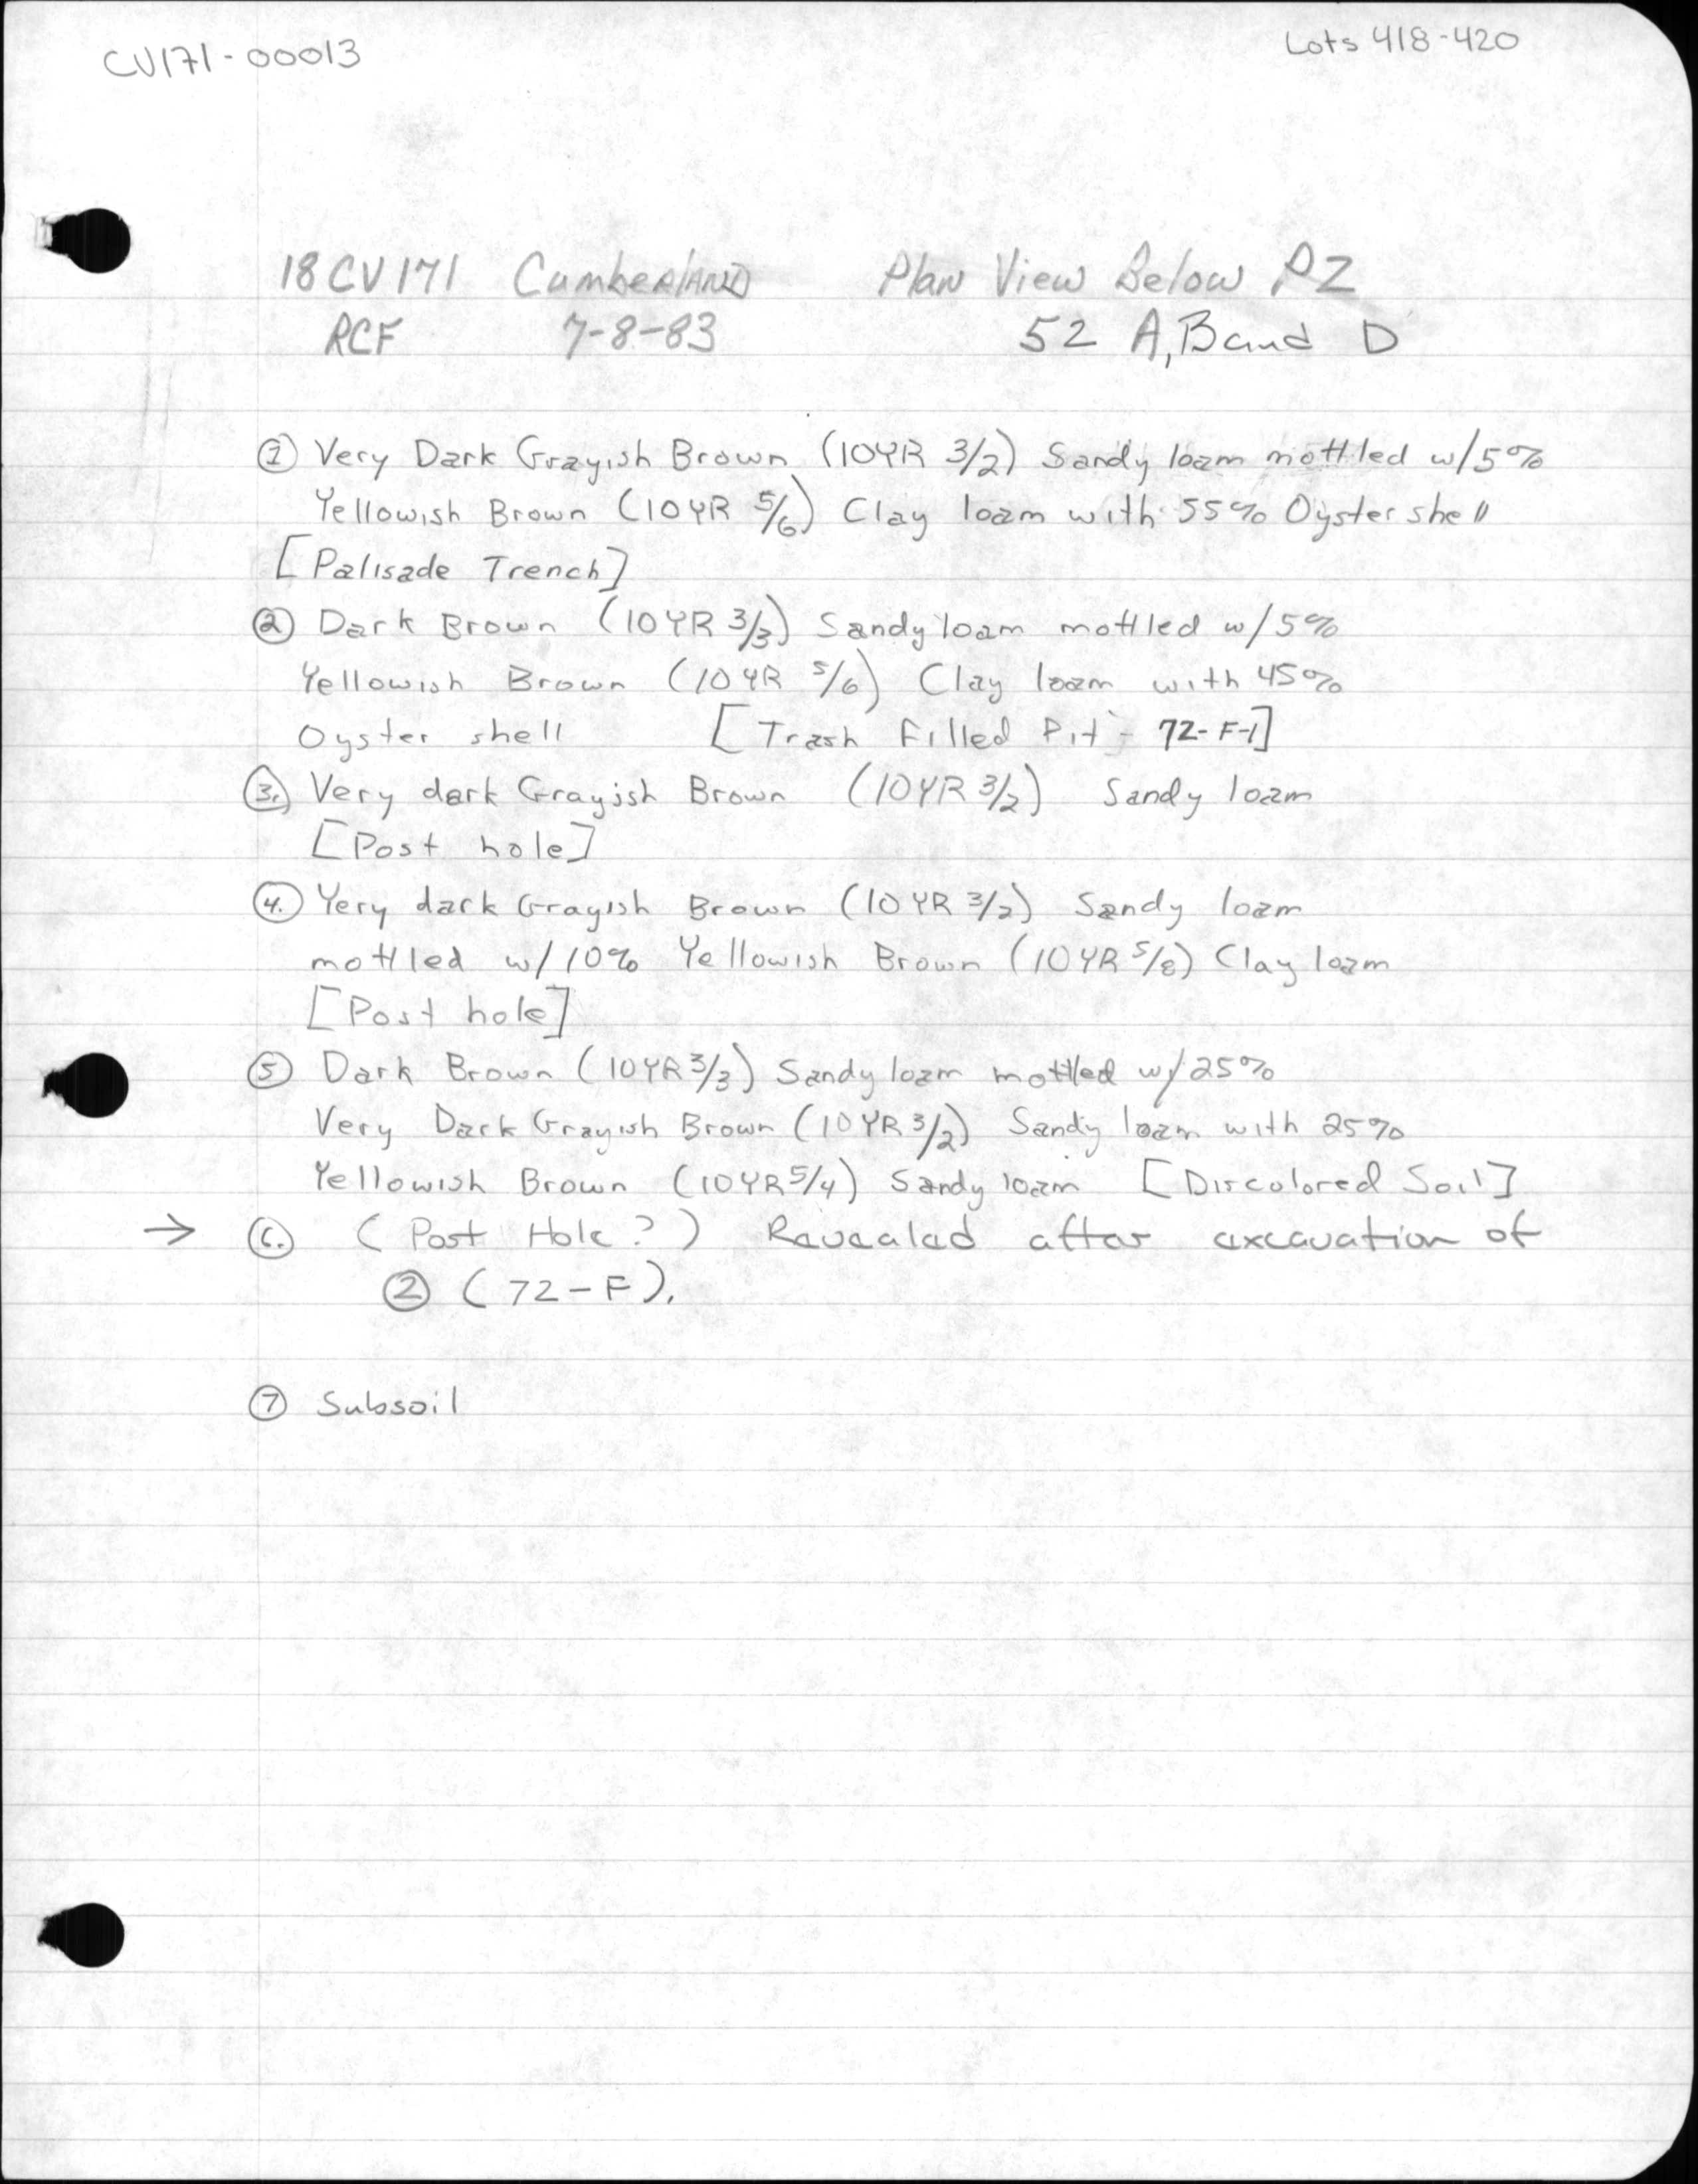 CV171-00013
Lots 418-420
18CV171 Cumberland Plan View Below PZ
RCF 7-8-83 52 A, B and D
① Very Dark Grayish Brown (10YR 3/2) Sandy loam mottled w/5%
Yellowish Brown (10YR 5/6) Clay loam with 55% Oyster shell
[Palisade Trench]
② Dark Brown (10YR 3/3) Sandy loam mottled w/5%
Yellowish Brown (10YR 5/6) Clay loam with 45%
Oyster shell [Trash Filled Pit - 72-F-1]
③. Very dark Grayish Brown (10YR 3/2) Sandy loam
[Post hole]
④. Very dark Grayish Brown (10YR 3/2) Sandy loam
mottled w/10% Yellowish Brown (10YR 5/8) Clay loam
[Post hole]
⑤ Dark Brown (10YR 3/3) Sandy loam mottled w/25%
Very Dark Grayish Brown (10YR 3/2) Sandy loam with 25%
Yellowish Brown (10YR 5/4) Sandy loam [Discolored Soil]
→ ⑥. (Post Hole?) Revealed after excavation of
② (72-F).
⑦ Subsoil